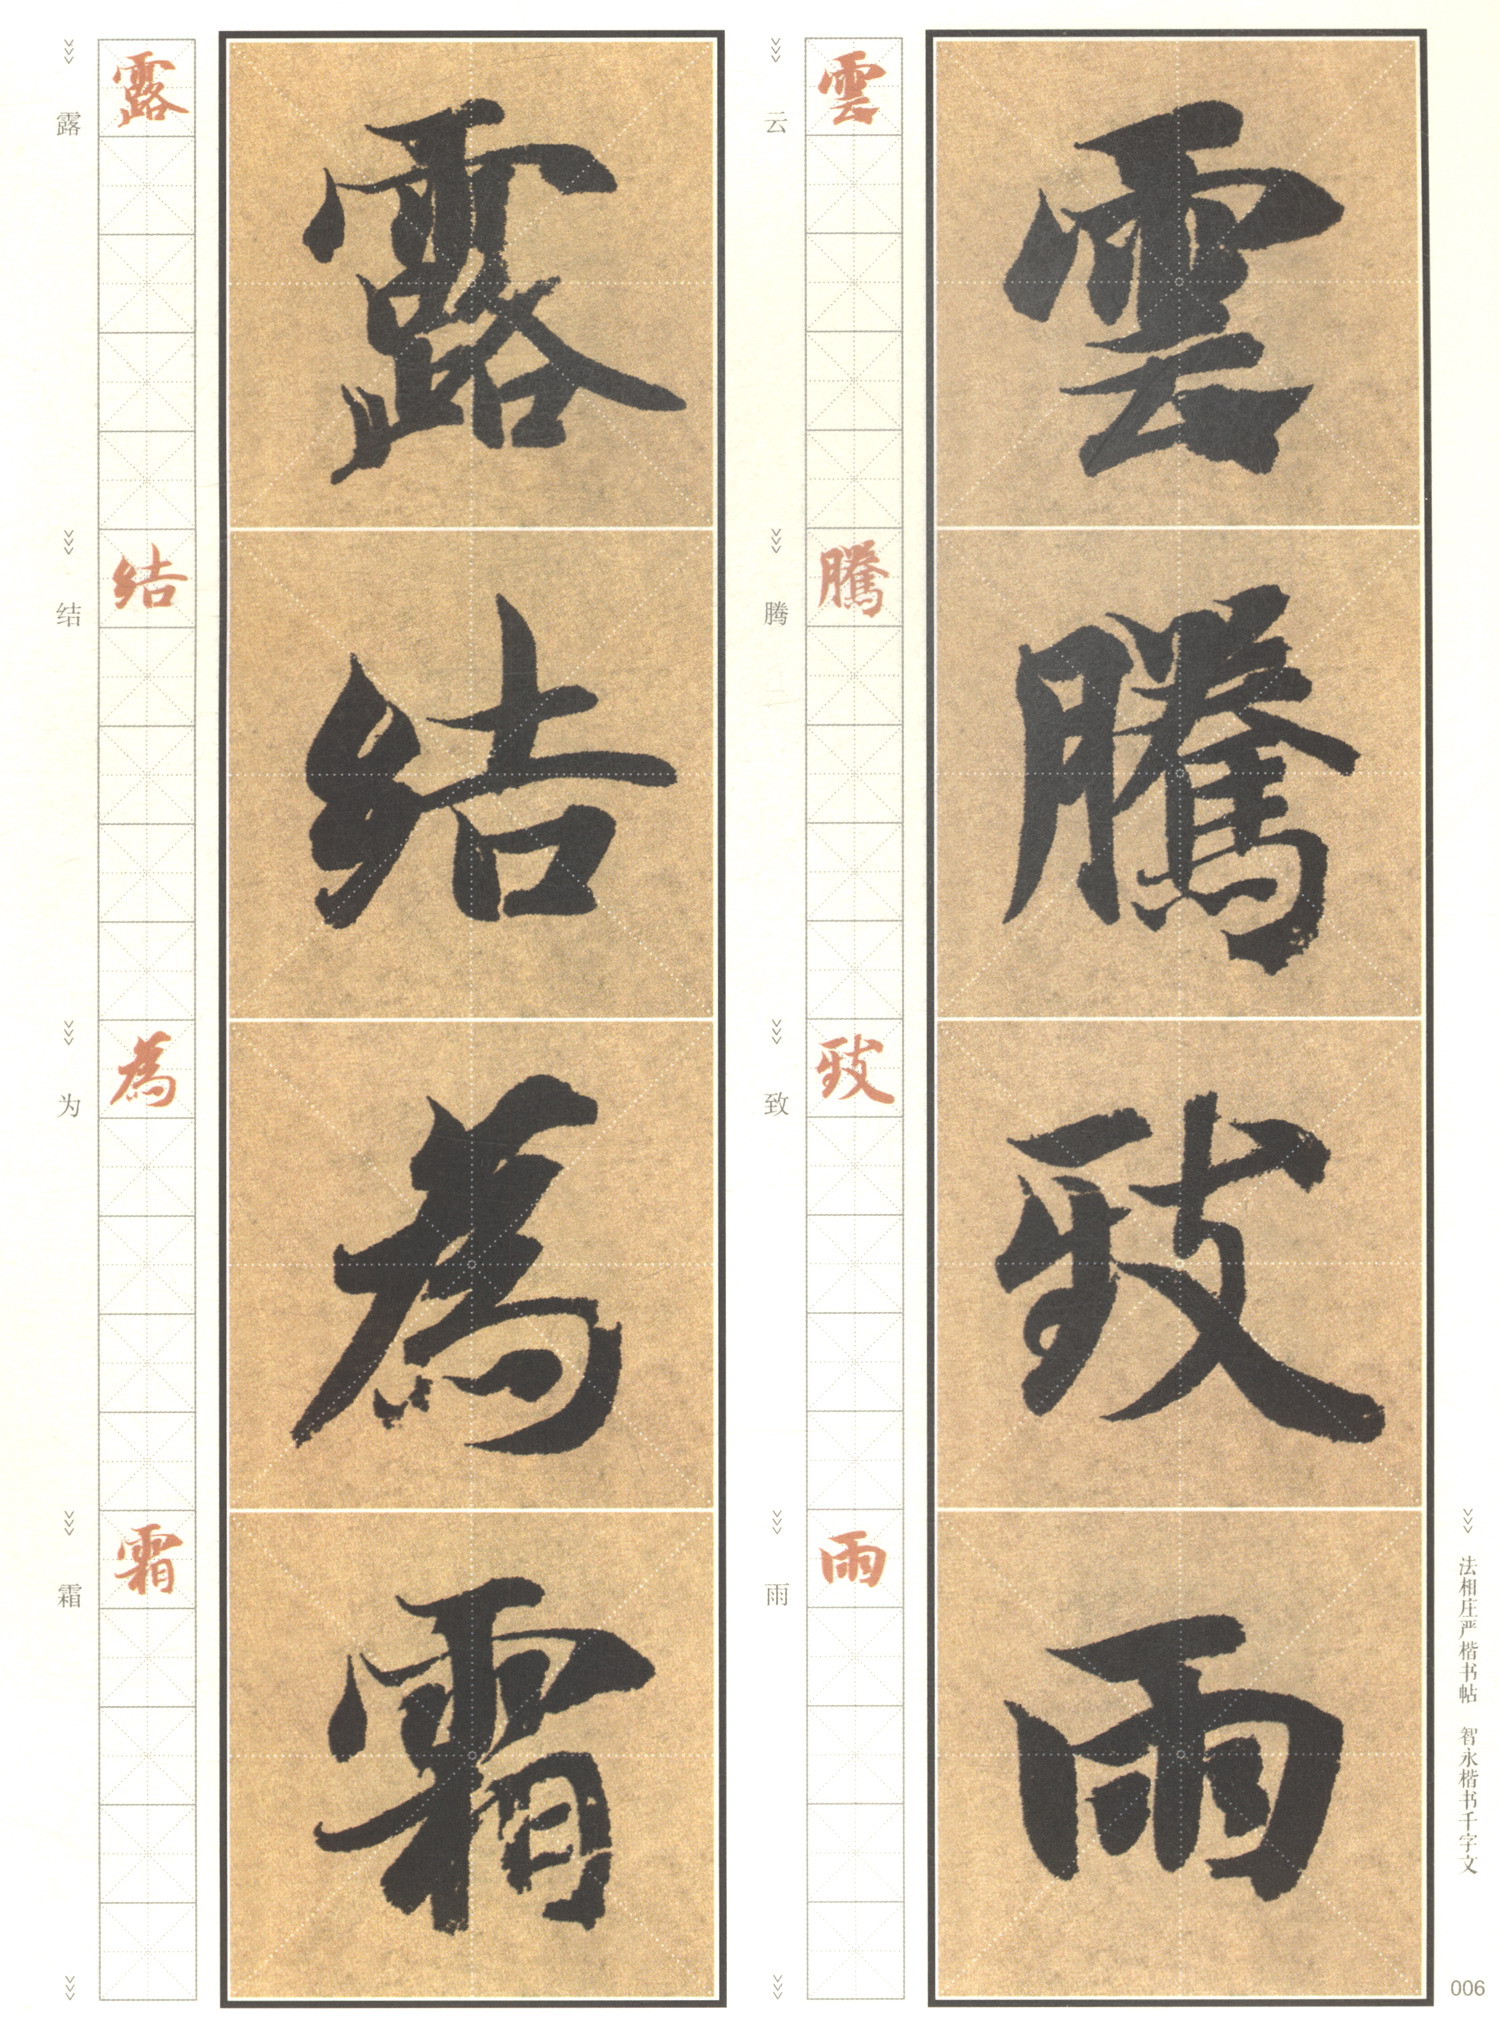 雲騰致雨
雲
騰
致
雨
云
腾
致
雨
露結為霜
露
結
為
霜
露
结
为
霜
法相庄严楷书帖 智永楷书千字文
006